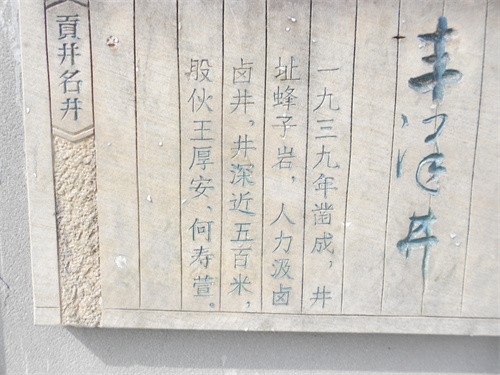 丰泽井
一九三九年凿成，井
址蜂子岩，人力汲卤
卤井，井深近五百米，
股伙王厚安、何寿萱。
貢井名井